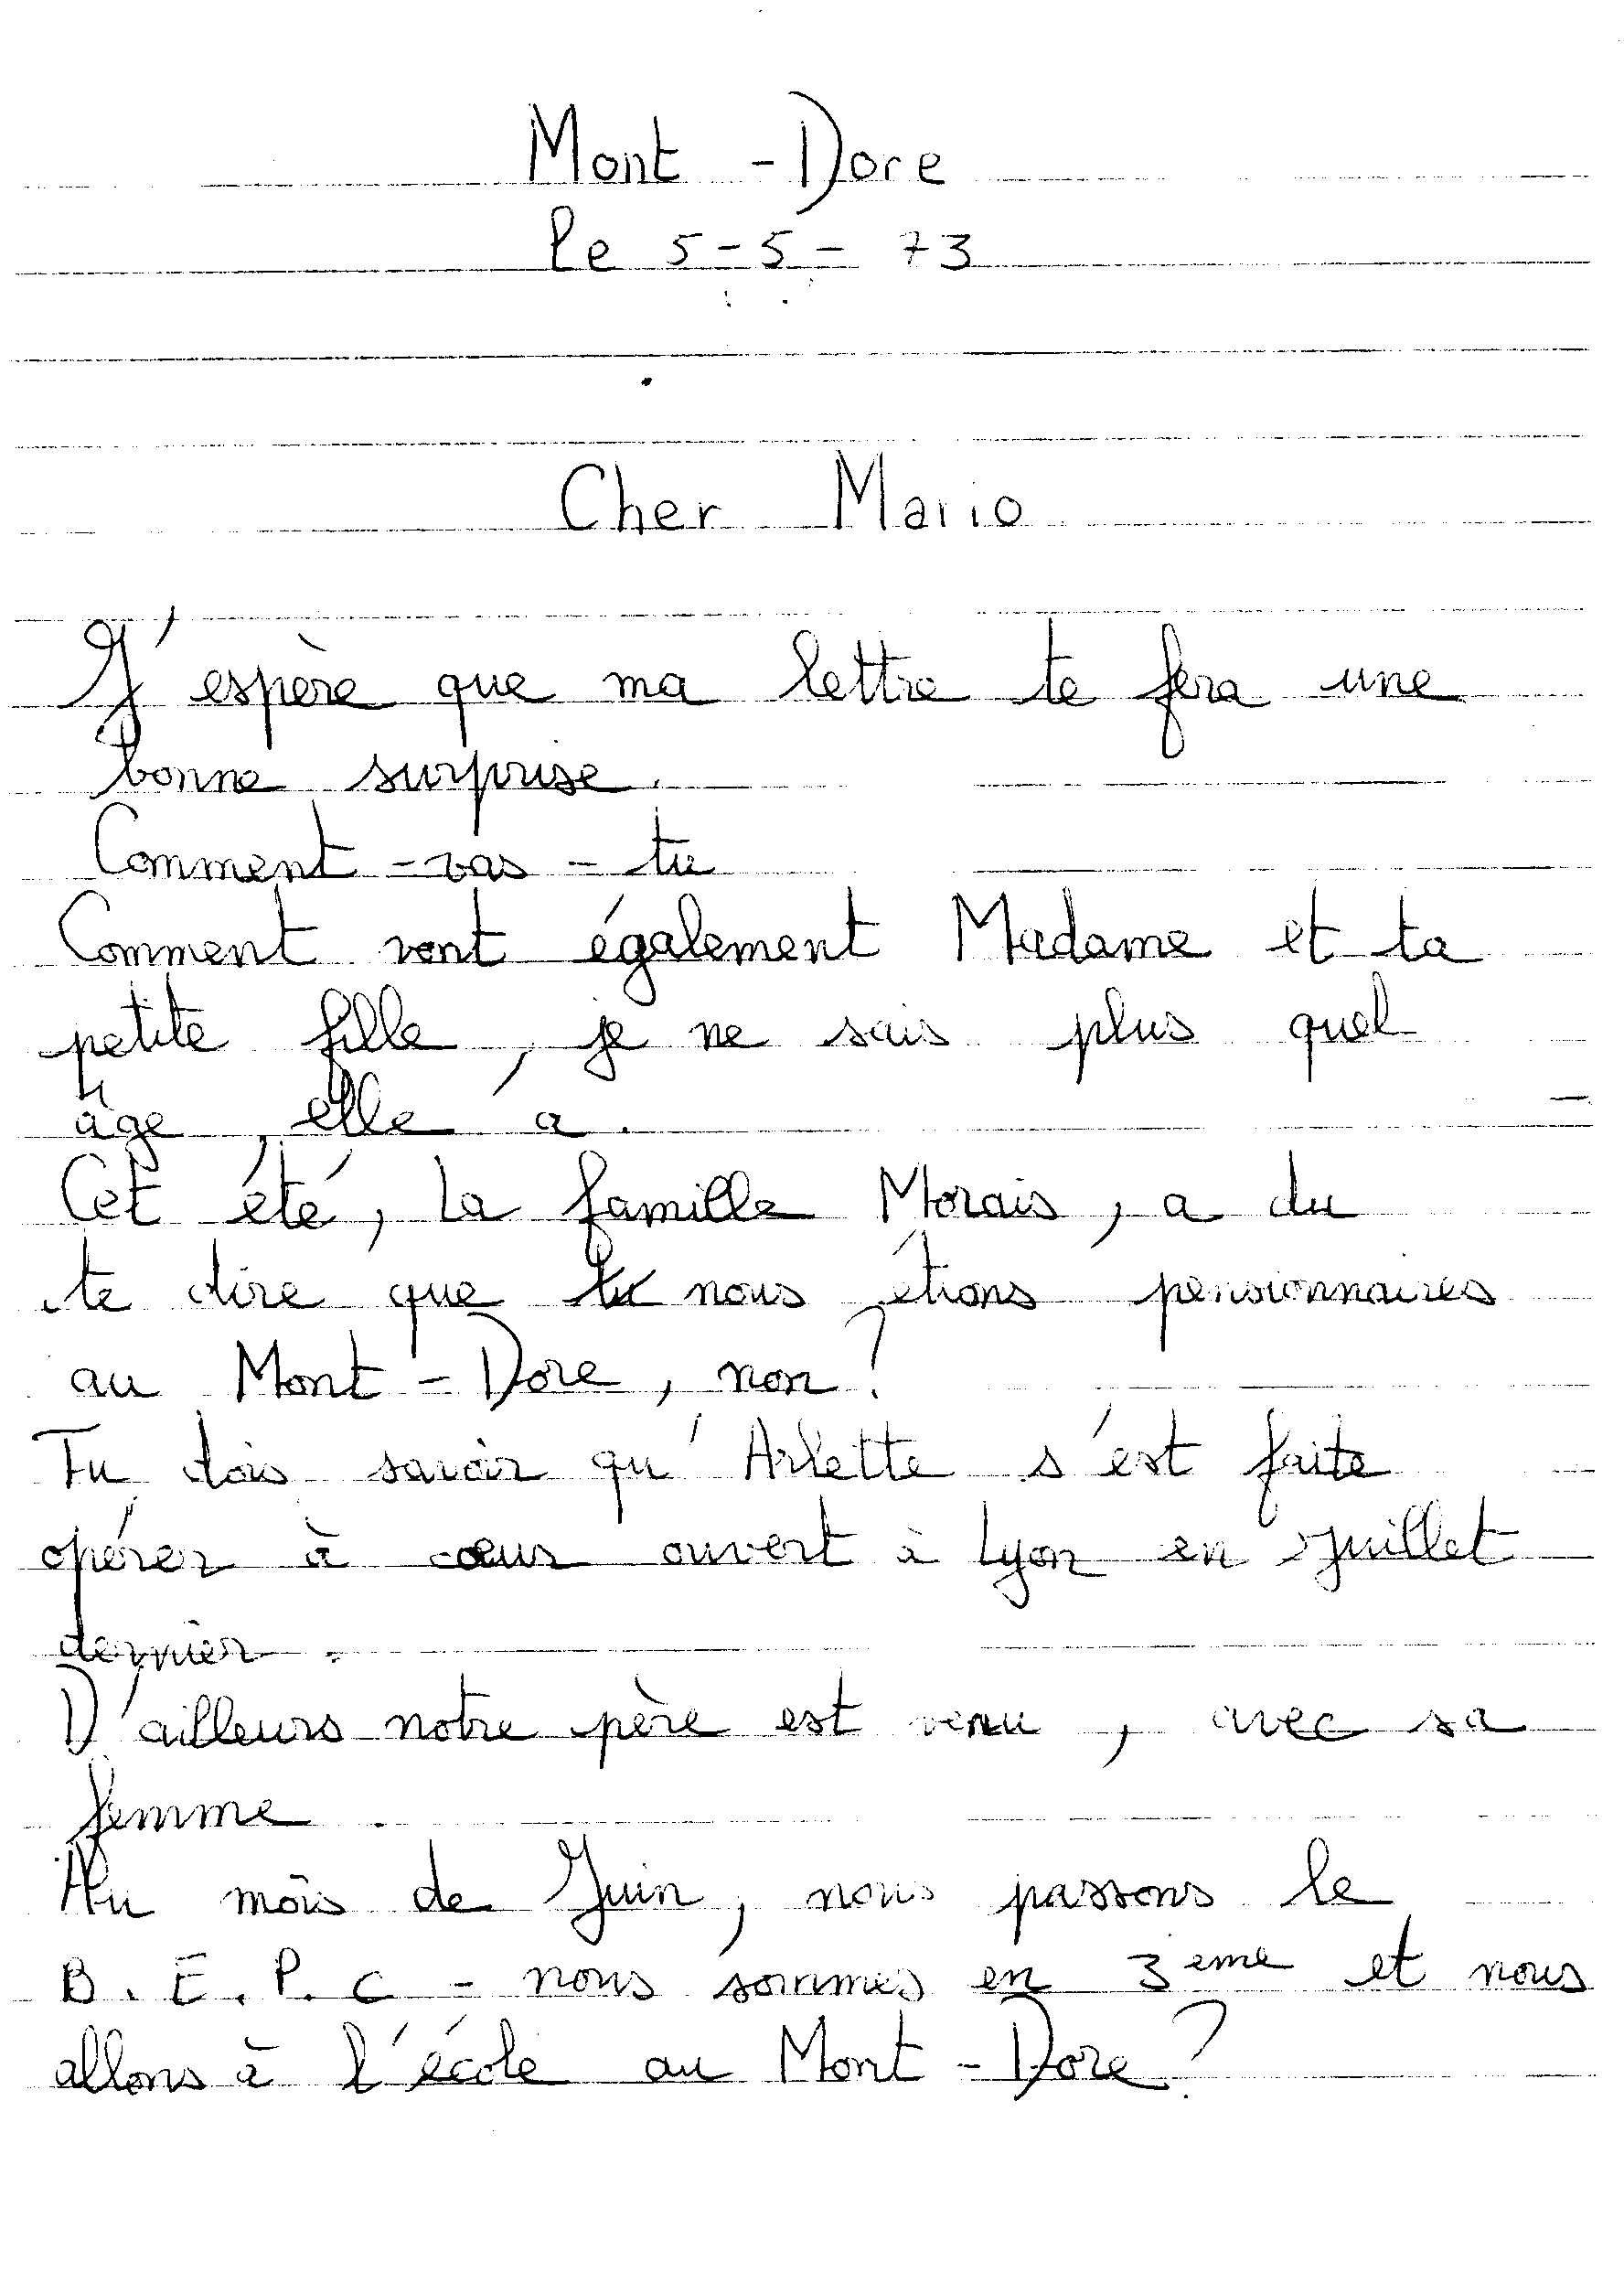 Mont-Dore
le 5-5-73
Cher Mario
J'espère que ma lettre te fera une
bonne surprise.
Comment-vas-tu
Comment vont également Madame et ta
petite fille, je ne sais plus quel
âge, elle a.
Cet été, la famille Morais, a du
te dire que tu nous étions pensionnaires
au Mont-Dore, non?
Tu dois savoir qu'Arlette s'est faite
opérer à cœur ouvert à Lyon en Juillet
dernier.
D'ailleurs notre père est venu, avec sa
femme.
Au mois de Juin, nous passons le
B.E.P.C - nous sommes en 3eme et nous
allons à l'école au Mont-Dore?